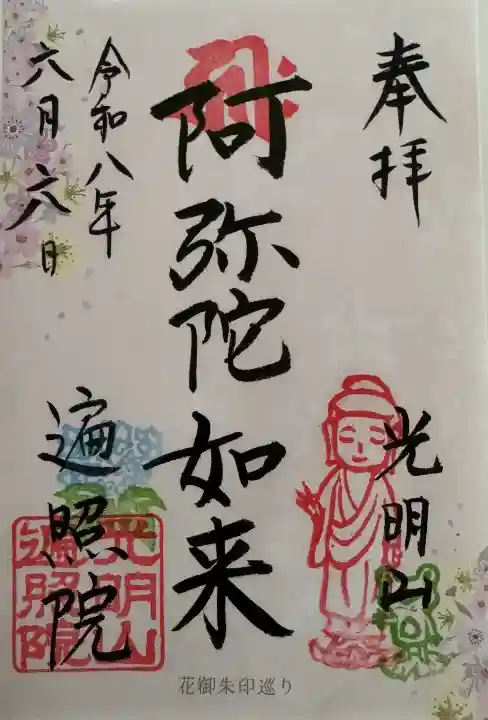 奉拝
光明山
阿弥陀如来
令和八年
六月六日
遍照院
光明山
遍照院
花御朱印巡り